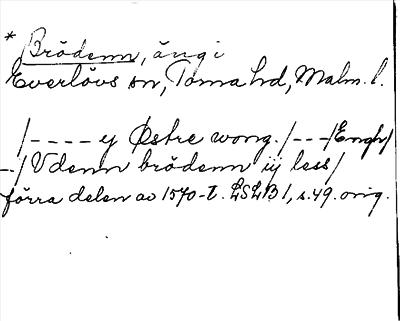 * Brödenn, äng i
Everlövs sn, Torna hd, Malm. l.
/---- y Østre wong. /---/Engh/
--/ Vdenn brödenn iij less/
förra delen av 1570-t. LSLB 1, s. 49. orig.